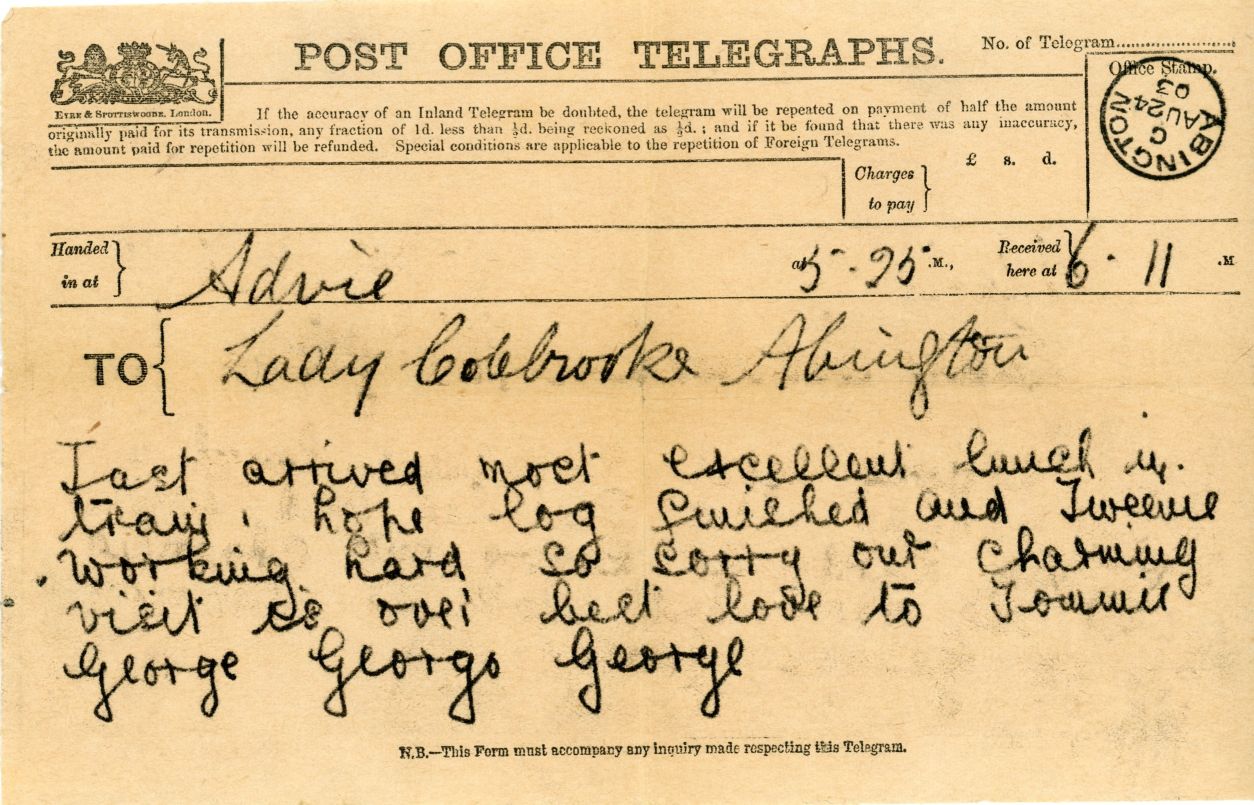 POST OFFICE TELEGRAPHS.
No. of Telegram
Office Stamp.
ABINGTON
C
AU 24
03
EYRE & SPOTTISWOODE, London.
If the accuracy of an Inland Telegram be doubted, the telegram will be repeated on payment of half the amount
originally paid for its transmission, any fraction of 1d. less than ½d. being reckoned as ½d.; and if it be found that there was any inaccuracy,
the amount paid for repetition will be refunded. Special conditions are applicable to the repetition of Foreign Telegrams.
Charges to pay } £ s. d.
Handed in at } Advie at 5·25 .M., Received here at } 6·11 .M
TO { Lady Colebrooke Abington
Just arrived most excellent lunch in
train hope log finished and Tweenie
working hard so sorry our charming
visit is over best love to Tommie
George George George
N.B.—This Form must accompany any inquiry made respecting this Telegram.